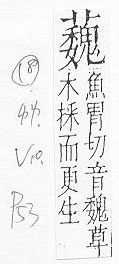 蘶
魚胃切音魏草
木採而更生
18
V10.
P53